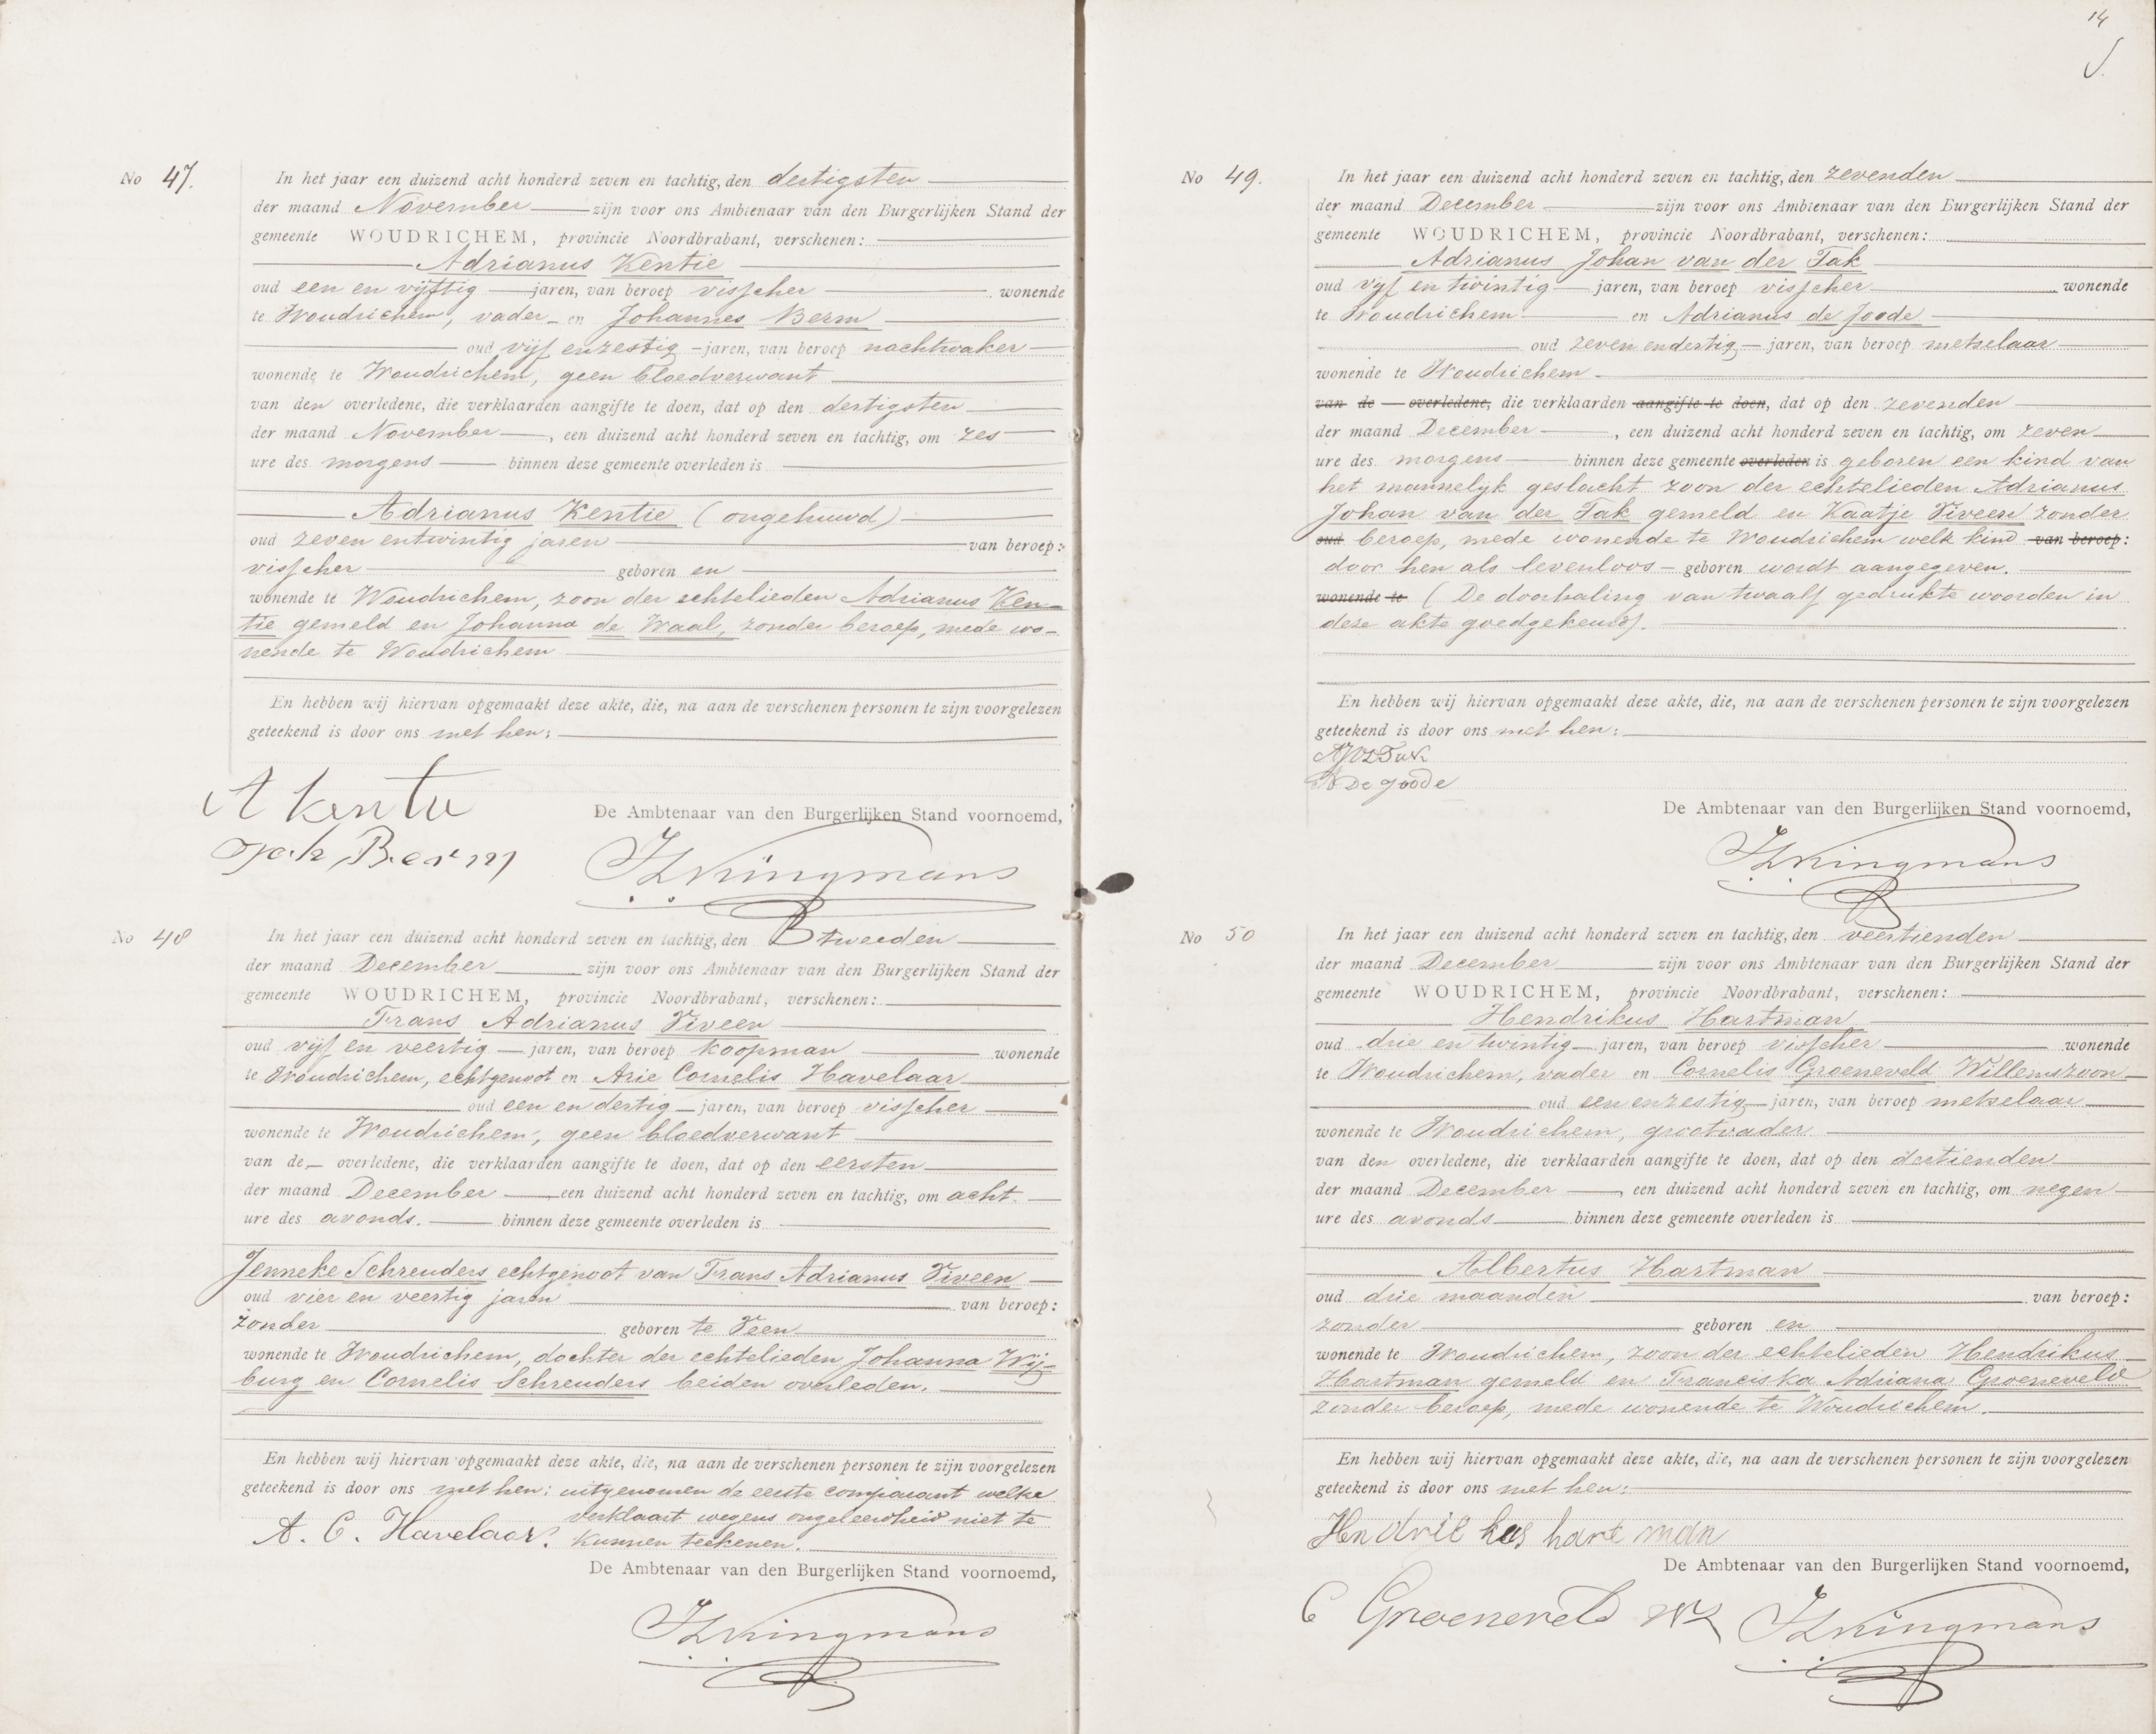 14
No 47.
In het jaar een duizend acht honderd zeven en tachtig, den dertigsten
der maand November zijn voor ons Ambtenaar van den Burgerlijken Stand der
gemeente WOUDRICHEM, provincie Noordbrabant, verschenen:
Adrianus Kentie
oud een en vijftig jaren, van beroep visscher wonende
te Woudrichem, vader en Johannes Berm
oud vijf en zestig jaren, van beroep nachtwaker
wonende te Woudrichem, geen bloedverwant
van den overledene, die verklaarden aangifte te doen, dat op den dertigsten
der maand November, een duizend acht honderd zeven en tachtig, om zes
ure des morgens binnen deze gemeente overleden is
Adrianus Kentie (ongehuwd)
oud zeven en twintig jaren van beroep:
visscher geboren en
wonende te Woudrichem, zoon der echtelieden Adrianus Ken-
tie gemeld en Johanna de Waal, zonder beroep, mede wo-
nende te Woudrichem
En hebben wij hiervan opgemaakt deze akte, die, na aan de verschenen personen te zijn voorgelezen
geteekend is door ons met hen:
A Kentie
Joh Berm
De Ambtenaar van den Burgerlijken Stand voornoemd,
No 48
In het jaar een duizend acht honderd zeven en tachtig, den tweeden
der maand December zijn voor ons Ambtenaar van den Burgerlijken Stand der
gemeente WOUDRICHEM, provincie Noordbrabant, verschenen:
Frans Adrianus Viveen
oud vijf en veertig jaren, van beroep koopman wonende
te Woudrichem, echtgenoot en Arie Cornelis Havelaar
oud een en dertig jaren, van beroep visscher
wonende te Woudrichem, geen bloedverwant
van de overledene, die verklaarden aangifte te doen, dat op den eersten
der maand December een duizend acht honderd zeven en tachtig, om acht
ure des avonds. binnen deze gemeente overleden is
Jenneke Schreuders echtgenoot van Frans Adrianus Viveen
oud vier en veertig jaren van beroep:
zonder geboren te Veen
wonende te Woudrichem, dochter der echtelieden Johanna Wij-
burg en Cornelis Schreuders beiden overleden.
En hebben wij hiervan opgemaakt deze akte, die, na aan de verschenen personen te zijn voorgelezen
geteekend is door ons met hen: uitgenomen de eerste comparant welke
verklaart wegens ongeleerdheid niet te
kunnen teekenen.
A. C. Havelaar.
De Ambtenaar van den Burgerlijken Stand voornoemd,
No 49.
In het jaar een duizend acht honderd zeven en tachtig, den zevenden
der maand December zijn voor ons Ambtenaar van den Burgerlijken Stand der
gemeente WOUDRICHEM, provincie Noordbrabant, verschenen:
Adrianus Johan van der Tak
oud vijf en twintig jaren, van beroep visscher wonende
te Woudrichem en Adrianus de Joode
oud zeven en dertig jaren, van beroep metselaar
wonende te Woudrichem
van de overledene, die verklaarden aangifte te doen, dat op den zevenden
der maand December, een duizend acht honderd zeven en tachtig, om zeven
ure des morgens binnen deze gemeente overleden is geboren een kind van
het mannelijk geslacht zoon der echtelieden Adrianus
Johan van der Tak gemeld en Kaatje Viveen zonder
oud beroep, mede wonende te Woudrichem welk kind van beroep:
door hen als levenloos geboren wordt aangegeven.
wonende te (De doorhaling van twaalf gedrukte woorden in
deze akte goedgekeurd).
En hebben wij hiervan opgemaakt deze akte, die, na aan de verschenen personen te zijn voorgelezen
geteekend is door ons met hen:
AJVDTak
A De Joode
De Ambtenaar van den Burgerlijken Stand voornoemd,
No 50
In het jaar een duizend acht honderd zeven en tachtig, den veertienden
der maand December zijn voor ons Ambtenaar van den Burgerlijken Stand der
gemeente WOUDRICHEM, provincie Noordbrabant, verschenen:
Hendrikus Hartman
oud drie en twintig jaren, van beroep visscher wonende
te Woudrichem, vader en Cornelis Groeneveld Willemszoon
oud een en zestig jaren, van beroep metselaar
wonende te Woudrichem, grootvader
van den overledene, die verklaarden aangifte te doen, dat op den dertienden
der maand December, een duizend acht honderd zeven en tachtig, om negen
ure des avonds binnen deze gemeente overleden is
Albertus Hartman
oud drie maanden van beroep:
zonder geboren en
wonende te Woudrichem, zoon der echtelieden Hendrikus
Hartman gemeld en Franciska Adriana Groeneveld
zonder beroep, mede wonende te Woudrichem.
En hebben wij hiervan opgemaakt deze akte, die, na aan de verschenen personen te zijn voorgelezen
geteekend is door ons met hen:
Hendrikus hartman
De Ambtenaar van den Burgerlijken Stand voornoemd,
C Groeneveld Wz